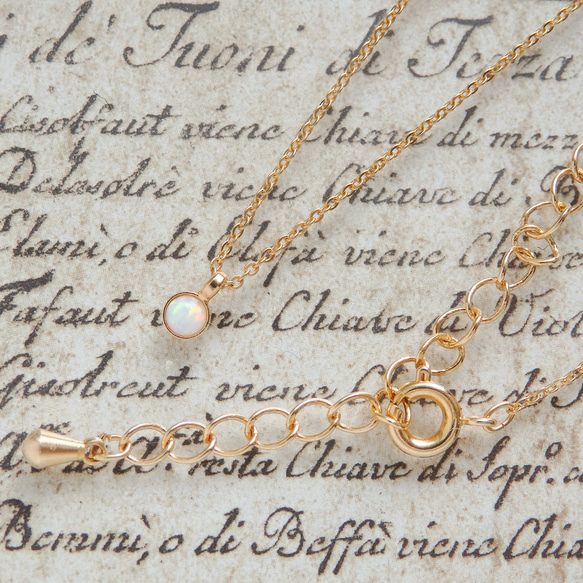 i de' Tuoni di Terza
Gisolfaut viene Chiave di mezz
Delasolrè viene Chiave di
Elamì, o di fà viene Chiave
Fafaut viene Chiave di Viol
Gisolreut viene Chiave
resta Chiave di Sopr.o
Bemmì, o di Beffà viene Chia